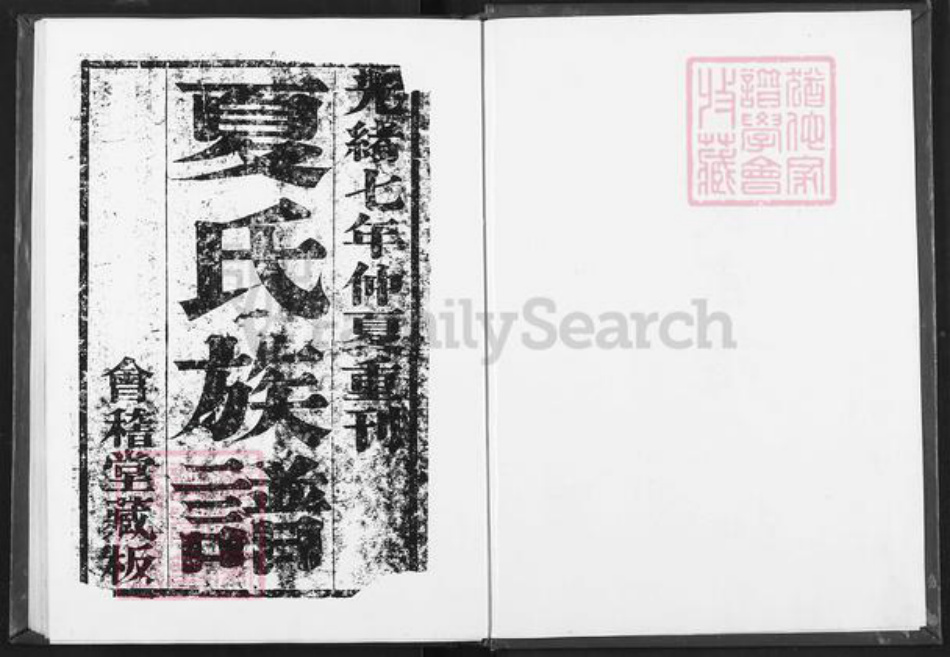 猶他家
譜學會
收藏
光緒七年仲夏重刊
夏氏族譜
會稽堂藏板
FamilySearch